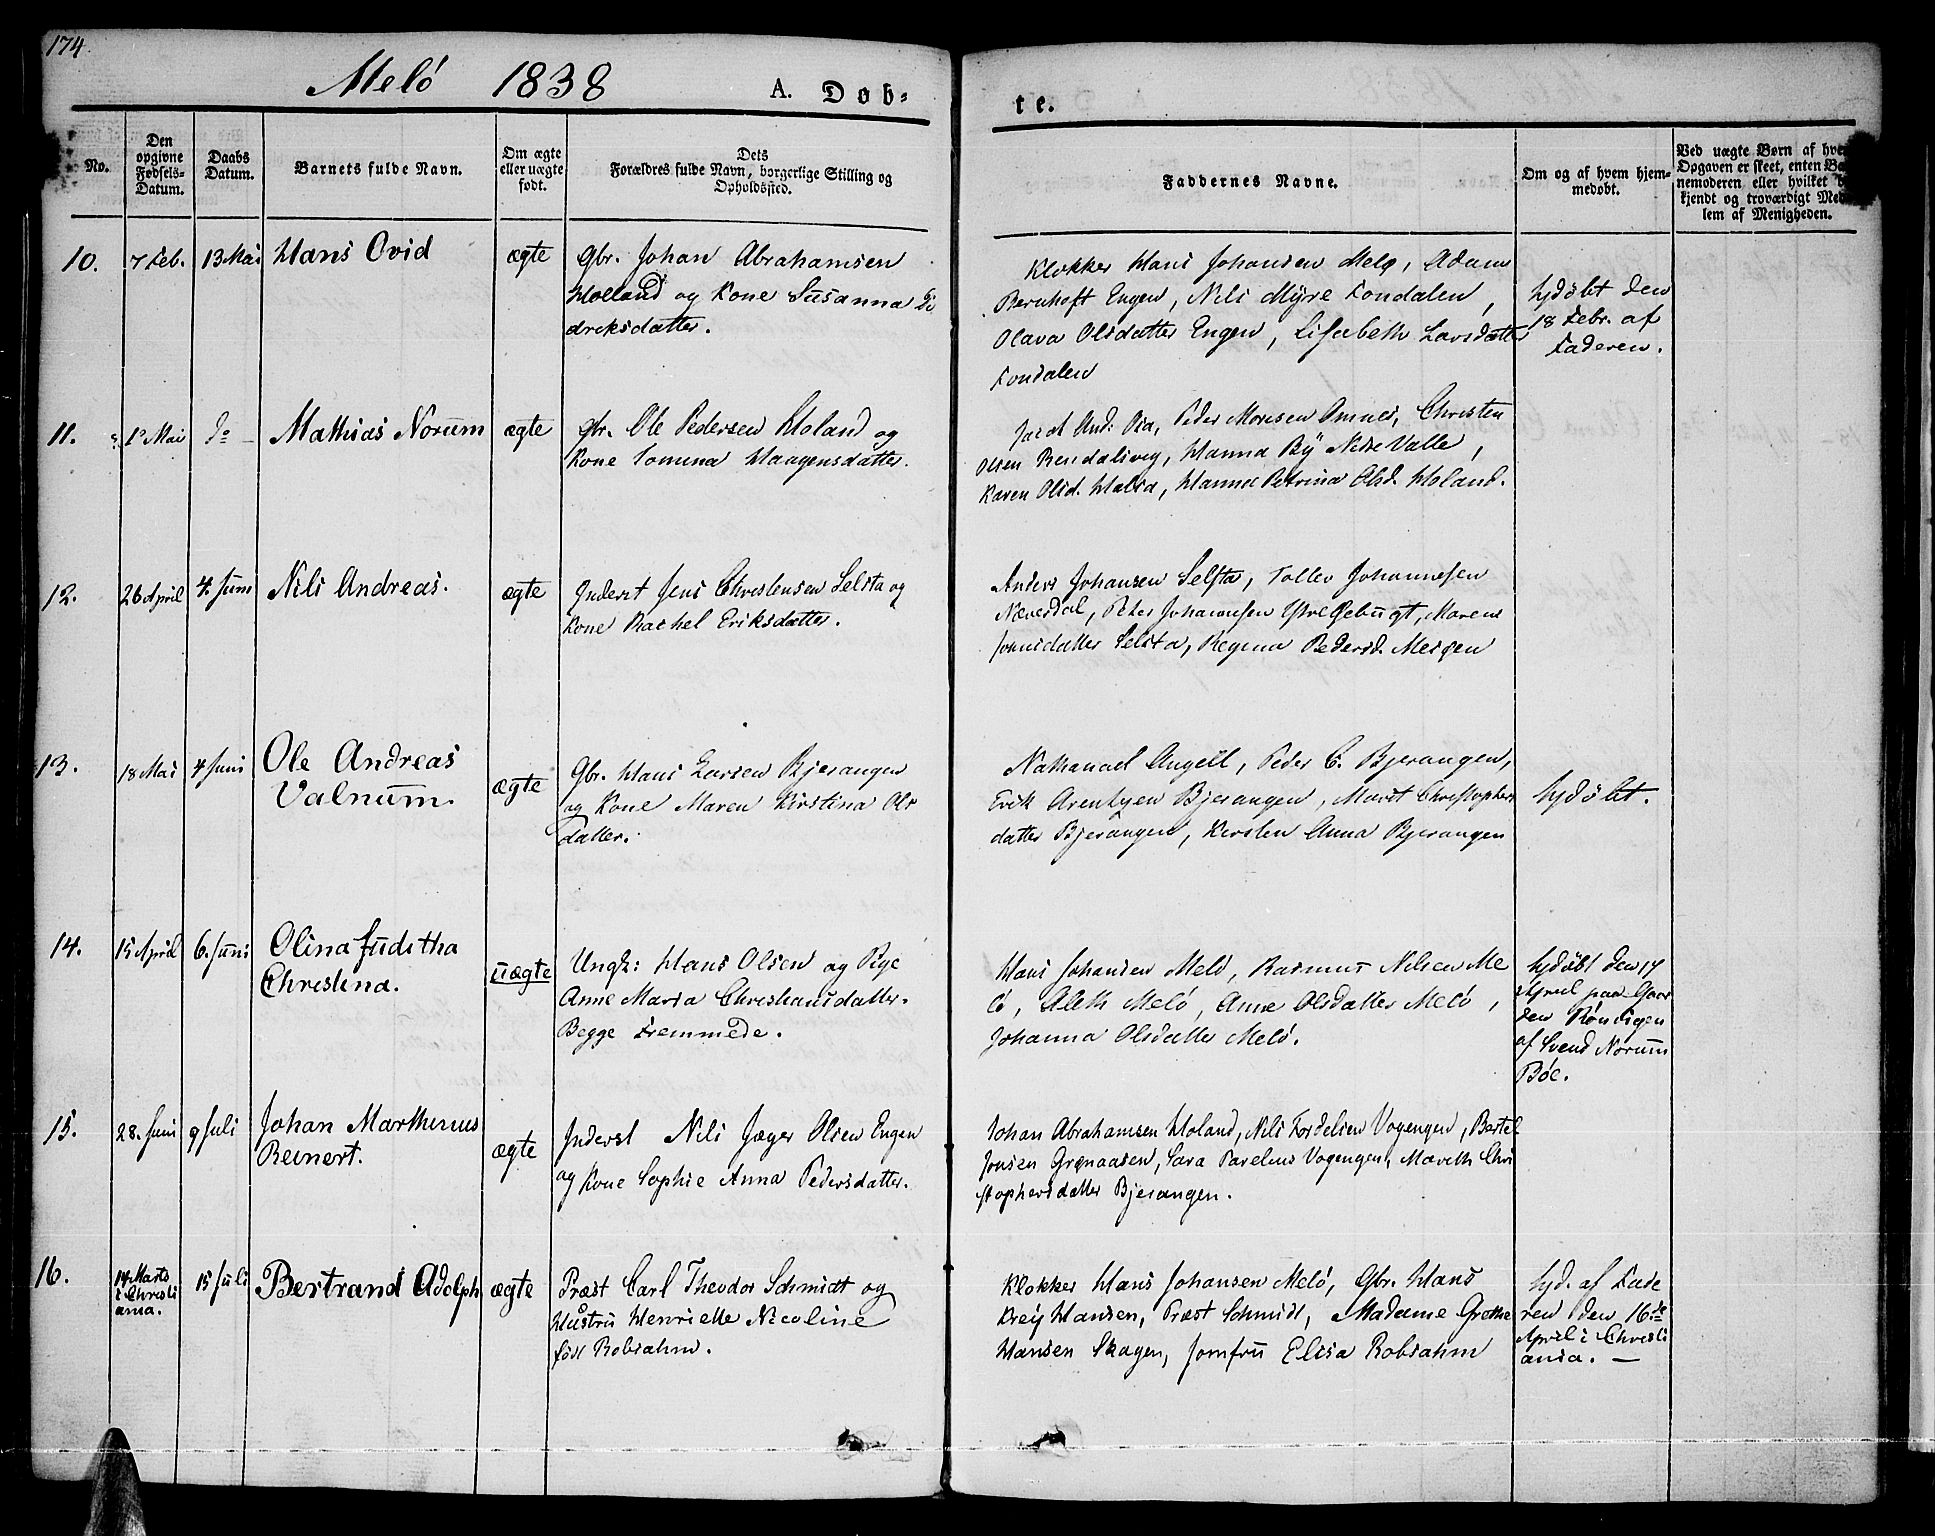 174.
Melö 1838 A. Døb-
te.
No.
Den
opgivne
Fødsels-
Datum.
Daabs
Datum.
Barnets fulde Navn.
Om ægte
eller uægte
født.
Dets
Forældres fulde Navn, borgerlige Stilling og
Opholdssted.
Faddernes Navne.
Om og af hvem hjem-
medøbt.
Ved uægte Børn af hvem
Opgaven er skeet, enten Bar-
nemoderen eller hvilket
kjendt og troværdigt Med-
lem af Menigheden.
10. 7 Feb. 13 Mai Hans Ovid ægte
Gbr. Johan Abrahamsen
Holland og Kone Susanna Di
driksdatter.
Klokker Hans Johansen Melø, Adam
Bernhoft Engen, Nils Myre Fondalen,
Olava Olsdatter Engen, Lisabeth Larsdatter
Fondalen
hjdöbt den
18 Febr. af
Faderen.
11. 1 Mai do Mathias Norum ægte
Gbr. Ole Pedersen Holand og
Kone Tomina Haagensdatter.
Jacob And: Osa, Peder Morcsen Omnes, Christen
Olsen Bendalsvig, Hanna By Nedre Valle,
Karen Olsd. Halsa, Hanna Petrina Olsd. Holand.
12. 26 April 4 Juni Nils Andreas. ægte
Inderst Jens Christensen Selsta og
Kone Rachel Eriksdatter.
Anders Johansen Selsta, Tollev Johannesen
Næverdal, Peter Johannesen Maren
Jonsdatter Selsta, Regina Pedersd. Meisen
13. 18 Mai 4 Juni Ole Andreas
Valnum. ægte
Gbr. Hans Larsen Bjerangen
og Kone Maren Kirstina Ols
datter.
Nathanael Angell, Peder C. Bjerangen,
Erik Arentsen Bjerangen, Marit Christophers
datter Bjerangen, Kirsten Anna Bjerangen
hjdöbt.
14. 15 April 6. Juni Olina Juditha
Christina. uægte
Ungk: Hans Olsen og Pige
Anne Maria Christiansdatter.
Begge Fremmede.
Hans Johansen Melö, Rasmus Nilsen Me
lö, Aleth Melö, Anne Olsdatter Melö,
Johanna Olsdatter Melö.
hjdöbt den 17
April paa Gaar
den Rönvigen
af Svend Norum
Böe.
15. 28. Juni 9 Juli Johan Marthinus
Reinert. ægte
Inderst Nils Jæger Olsen Engen
og Kone Sophie Anna Pedersdatter.
Johan Abrahamsen Holand, Nils Fordelsen Vogengen, Bertel
Jonsen Grønaasen, Sara Parelius Vogengen, Mareth Chri
stophersdatter Bjerangen.
16. 14 Marts
i Christi
ania. 15 Juli Bertrand Adolph ægte
Præst Carl Theodor Schmidt og
Hustru Henriette Nicoline
föd Robsahm.
Klokker Hans Johansen Melö, Gbr. Hans
Krey Hansen, Præst Schmidt, Madame Grethe
Hansen Skagen, Jomfru Elisa Robsahm
hjd. af Fade
ren den 16de
April i Christi
ania. —